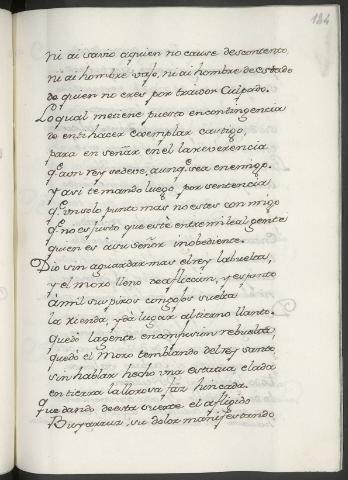 184
ni ai savio aquien no cause descontento,
ni ai hombre vajo, ni ai hombre de estado
de quien no eres por traidor Culpado.
Lo qual metiene puesto en contingencia
de en ti hacer exemplar castigo,
para enseñar en el la reverencia
q̃ aun rey se deve, aunq̃ sea enemigo.
y asi te mando luego, por sentencia,
q̃ un solo punto mas no estes con migo
q̃ no es justo que este entre mi leal gente
quien es a su señor inobediente.
Dio sin aguardar mas el rey la buelta,
y el moro lleno de afliccion, y espanto
a mil suspiros congojos suelta
la rienda, y da lugar al tierno llanto.
Quedó la gente en confusion rebuelta,
quedó el Moro temblando del rey santo,
sin hablar hecho una estatua elada
en tierra la llorosa faz hincada.
Quedando de esta suerte el afligido
su dolor manifestando